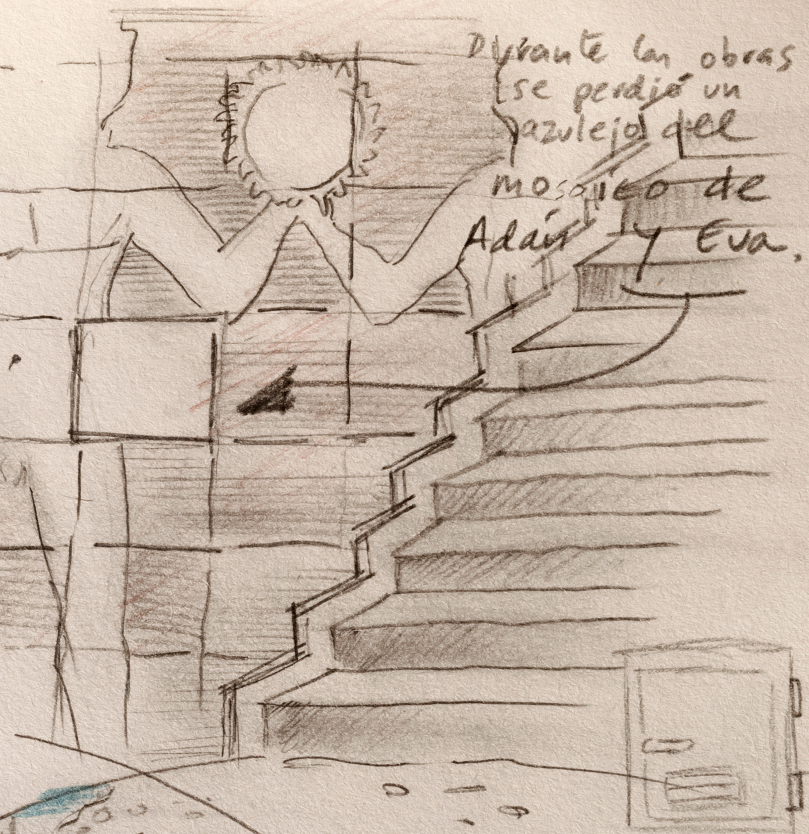 Durante las obras
se perdió un
azulejo del
mosaico de
Adán y Eva.